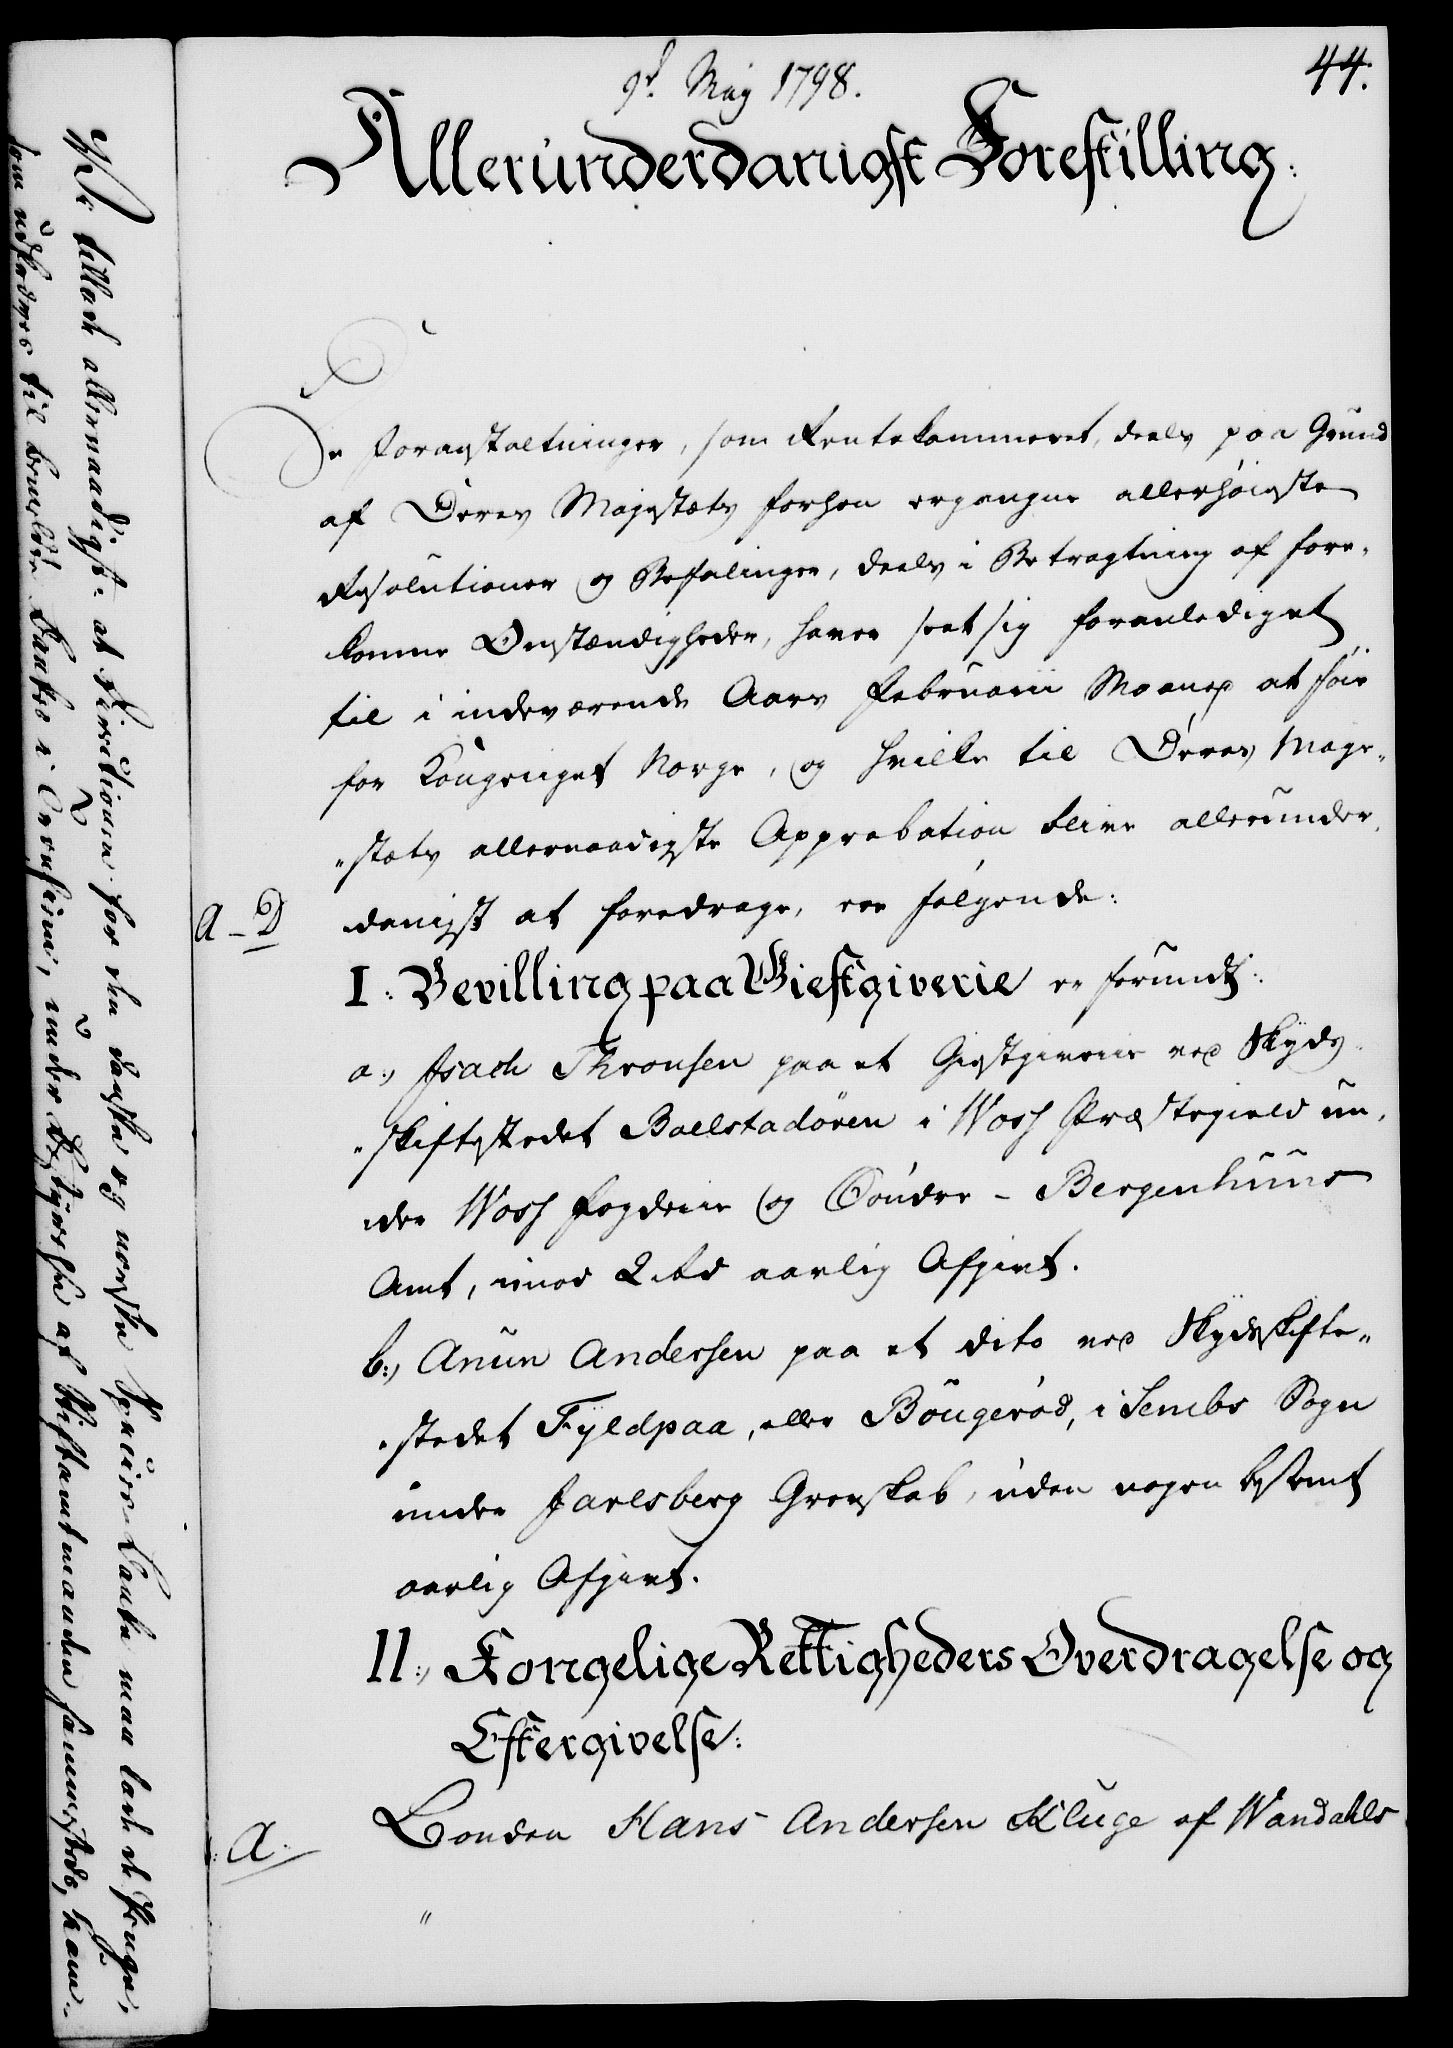 9d. Maÿ 1798.
44.
Allerunderdanigst Forestilling:
De Foranstaltninger, som Rentekammeret, deels paa Grund
af Deres Majestæts forhen ergangne allerhöieste
Resolutioner og Befalinger, deels i Betragtning af fore-
komne Omstændigheder, haver seet sig foranlediget
til i indeværende Aars Februarii Maaned at föie
for Kongeriget Norge, og hvilke til Deres Maje-
stæts allernaadigste Approbation blive allerunder-
danigst at foredrage, ere fölgende:
A-D
I: Bevilling paa Giestgiverie er forundt:
a:, Isach Thronsen paa et Giestgiverie ved Skyds-
skiftestedet Bolstadören i Woss Præstegield un-
der Woss Fogderie og Söndre-Bergenhuus
Amt, imod 2 rd aarlig Afgivt.
b:, Anun Andersen paa et dito ved Skydsskifte-
stedet Fyldpaa, eller Böugeröd, i Sembs Sogn
under Jarlsberg Grevskab, uden nogen bestemt
aarlig Afgivt.
II:, Kongelige Rettigheders Overdragelse og
Eftergivelse:
A.
Bonden Hans Andersen Kluge af Wandahls
"
Vi tillade allernaadigst: at Direktionen for den danske og norske Specie-Banke maa lade de Penge,
som udkræves til benældte Banko i Tronhiem, under Bestyrelse af Stiftamtmanden sammesteds, kom-